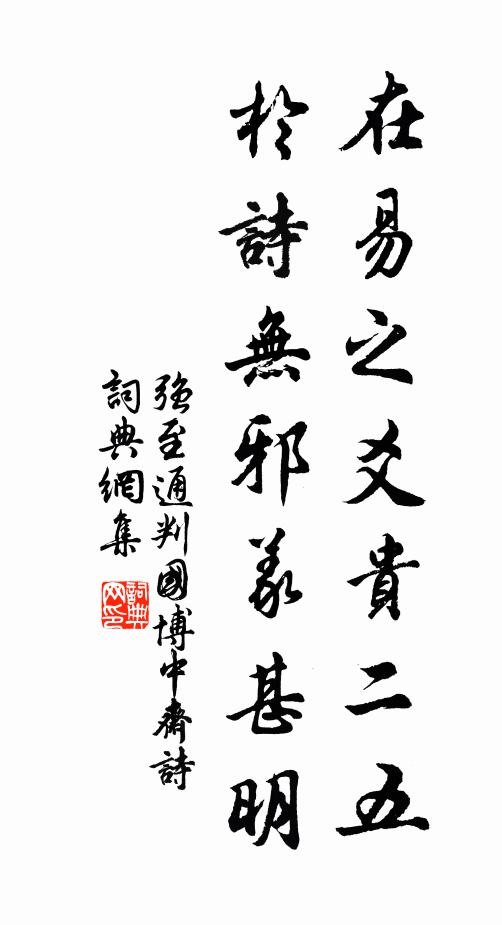 在易之爻貴二五
於詩無邪義甚明
強至通判國博中齋詩
詞典網集
詞典
网印